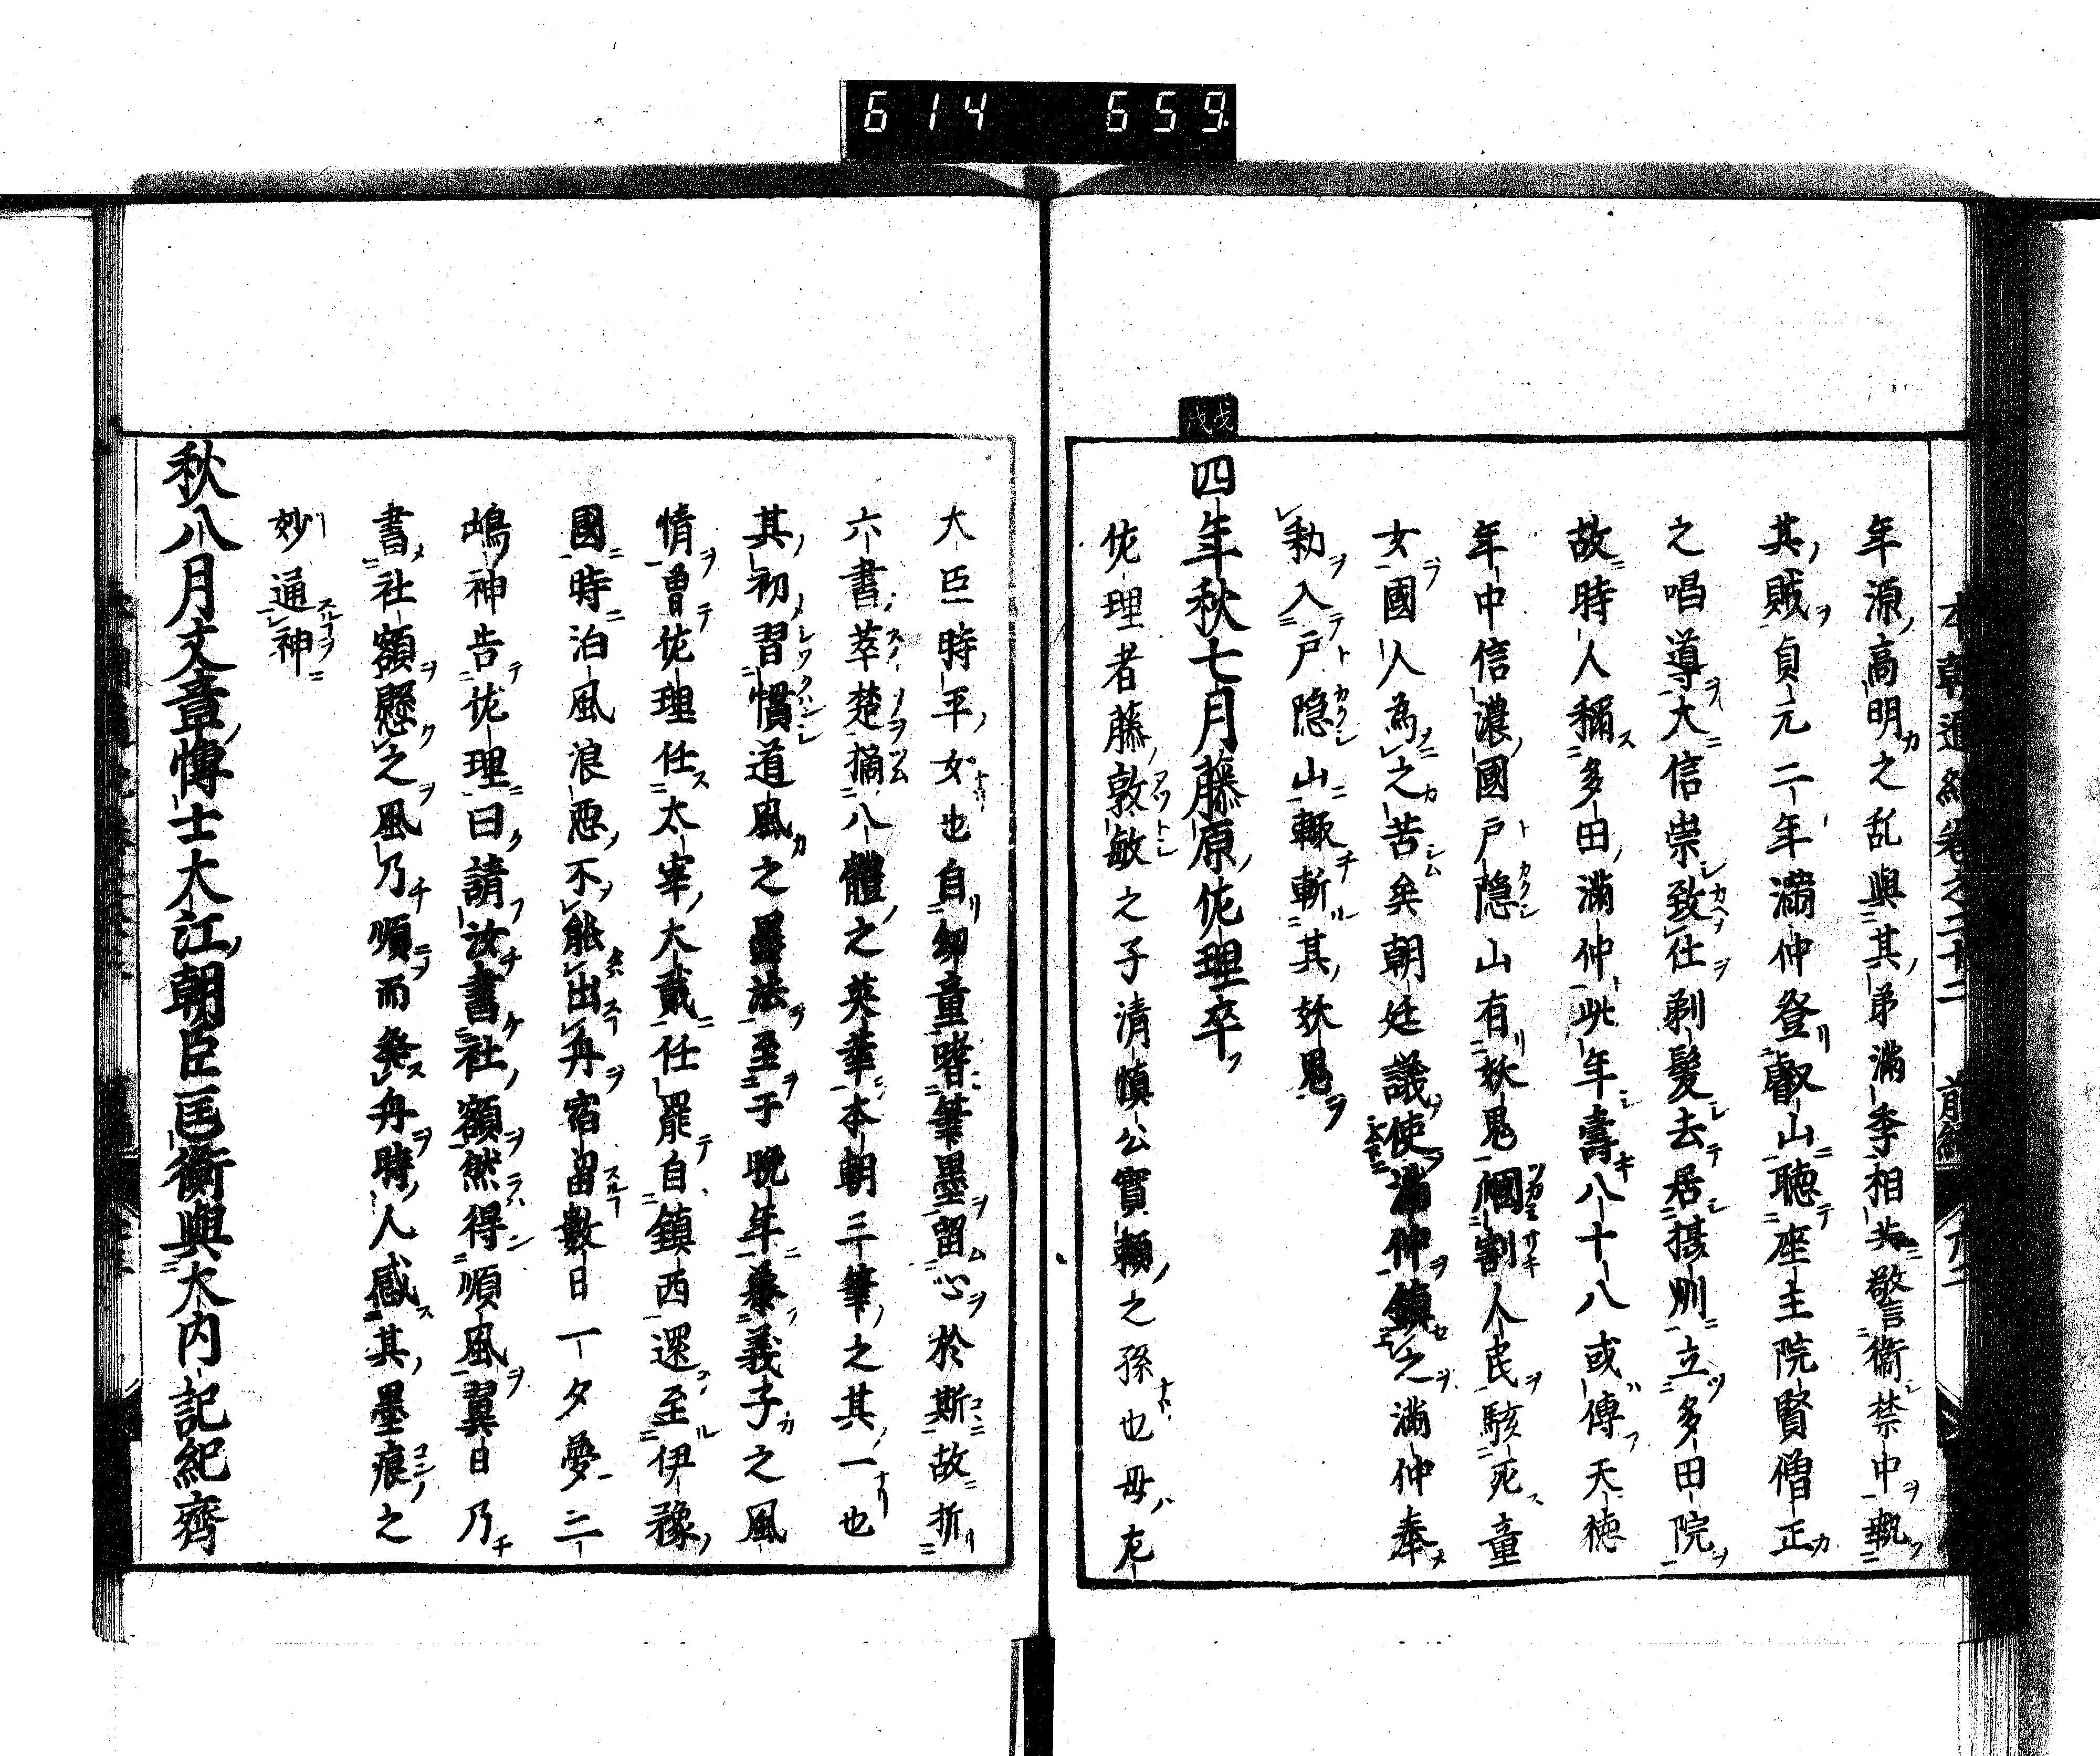 614 659
本朝通紀卷之二十二 前編
年源高明之乱與其弟滿季相共警衛禁中執
其賊貞元二年満仲登叡山聴座主院賢僧正
之唱導大信崇致仕剃髪去居攝州立多田院
故時人稱多田滿仲此年壽八十八或傳天徳
年中信濃國戸隐山有妖鬼個割人民駭死童
女國人為之苦矣朝廷議使滿仲鎮之滿仲奉
勑入戸隐山輙斬其妖鬼
戊戌
四年秋七月藤原佐理卒
佐理者藤敦敏之子清慎公實頼之孫也母左
大臣時平女也自幼童嗜筆墨留心於斯故折
六書萃楚摘八體之英華本朝三筆之其一也
其初習慣道風之墨法至于晩年慕義子之風
情曽佐理任太宰大貳任罷自鎮西還至伊豫
國時泊風浪悪不能出舟宿留數日一夕夢三
嶋神告佐理曰請汝書社額然得順風翼日乃
書社額懸之風乃順而発舟時人感其墨痕之
妙通神
秋八月文章博士大江朝臣匡衡與大内記紀齊